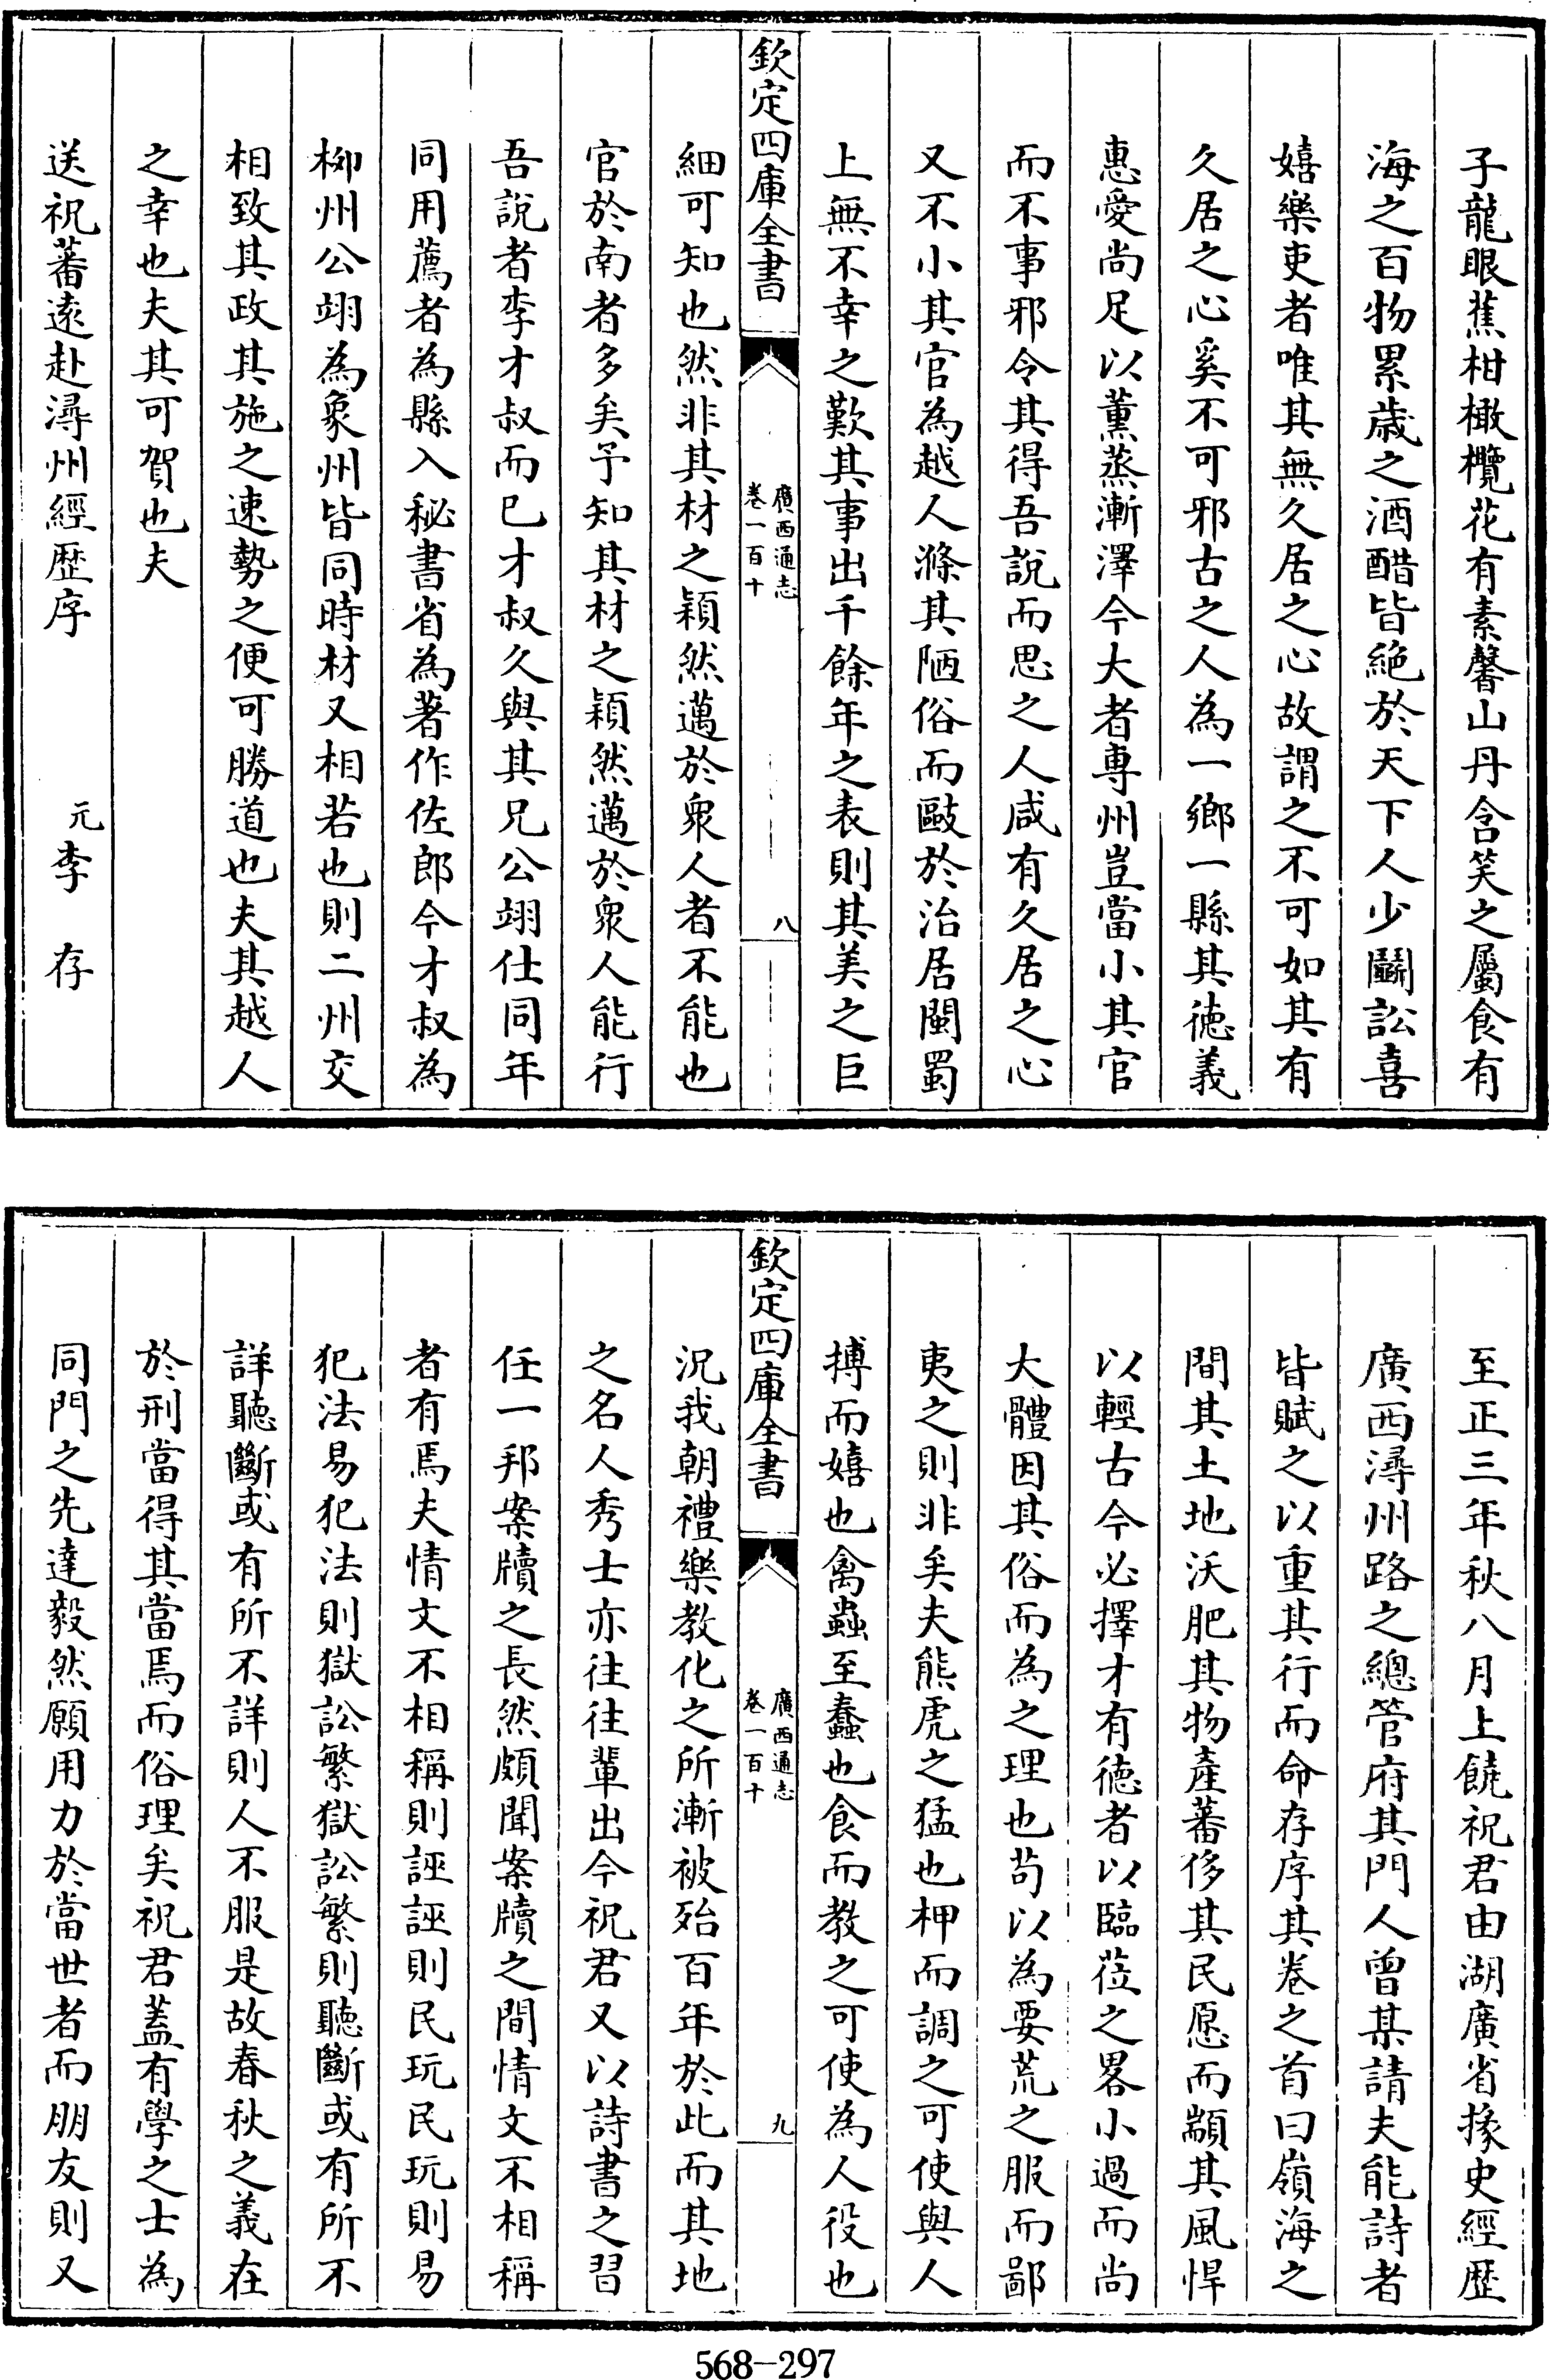 子龍眼蕉柑橄欖花有素馨山丹含笑之屬食有
海之百物累歲之酒醋皆絶於天下人少鬬訟喜
嬉樂吏者唯其無久居之心故謂之不可如其有
久居之心奚不可邪古之人為一鄉一縣其徳義
惠愛尚足以薰蒸漸澤今大者專州豈當小其官
而不事邪令其得吾說而思之人咸有久居之心
又不小其官為越人滌其陋俗而敺於治居閩蜀
上無不幸之歎其事出千餘年之表則其美之巨
欽定四庫全書
廣西通志
卷一百十
八
細可知也然非其材之穎然邁於衆人者不能也
官於南者多矣予知其材之穎然邁於衆人能行
吾說者李才叔而已才叔久與其兄公翊仕同年
同用薦者為縣入秘書省為著作佐郎今才叔為
柳州公翊為象州皆同時材又相若也則二州交
相致其政其施之速勢之便可勝道也夫其越人
之幸也夫其可賀也夫
送祝蕃逺赴潯州經歴序
元李存
至正三年秋八月上饒祝君由湖廣省掾史經歴
廣西潯州路之總管府其門人曾某請夫能詩者
皆賦之以重其行而命存序其卷之首曰嶺海之
間其土地沃肥其物產蕃侈其民愿而顓其風悍
以輕古今必擇才有徳者以臨莅之畧小過而尚
大體因其俗而為之理也苟以為要荒之服而鄙
夷之則非矣夫熊虎之猛也柙而調之可使與人
搏而嬉也禽蟲至蠢也食而教之可使為人役也
欽定四庫全書
廣西通志
卷一百十
九
況我朝禮樂教化之所漸被殆百年於此而其地
之名人秀士亦往往輩出今祝君又以詩書之習
任一邦案牘之長然頗聞案牘之間情文不相稱
者有焉夫情文不相稱則誣誣則民玩民玩則易
犯法易犯法則獄訟繁獄訟繁則聽斷或有所不
詳聽斷或有所不詳則人不服是故春秋之義在
於刑當得其當焉而俗理矣祝君蓋有學之士為
同門之先達毅然願用力於當世者而朋友則又
568-297